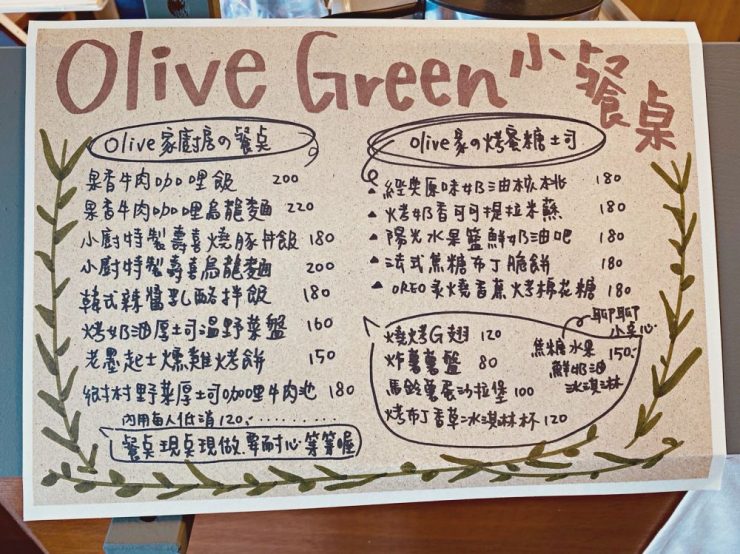 Olive Green 小餐桌
Olive 家廚房の餐桌
果香牛肉咖哩飯 200
果香牛肉咖哩烏龍麵 220
小廚特製壽喜燒豚丼飯 180
小廚特製壽喜烏龍麵 200
韓式辣醬乳酪拌飯 180
烤奶油厚土司溫野菜盤 160
老墨起士燻雞烤餅 150
鄉村野菜厚土司咖哩牛肉池 180
內用每人低消120.
餐桌現桌現做.要耐心等等喔
Olive家の烤蜜糖土司
經典原味奶油核桃 180
烤奶香可可提拉米蘇 180
陽光水果籃鮮奶油吧 180
法式焦糖布丁脆餅 180
OREO炙燒香蕉烤棉花糖 180
燒烤G翅 120
炸薯薯盤 80
馬鈴薯蛋沙拉堡 100
烤布丁香草冰淇淋杯 120
聊聊小桌心
焦糖水果 150.
鮮奶油
冰淇淋